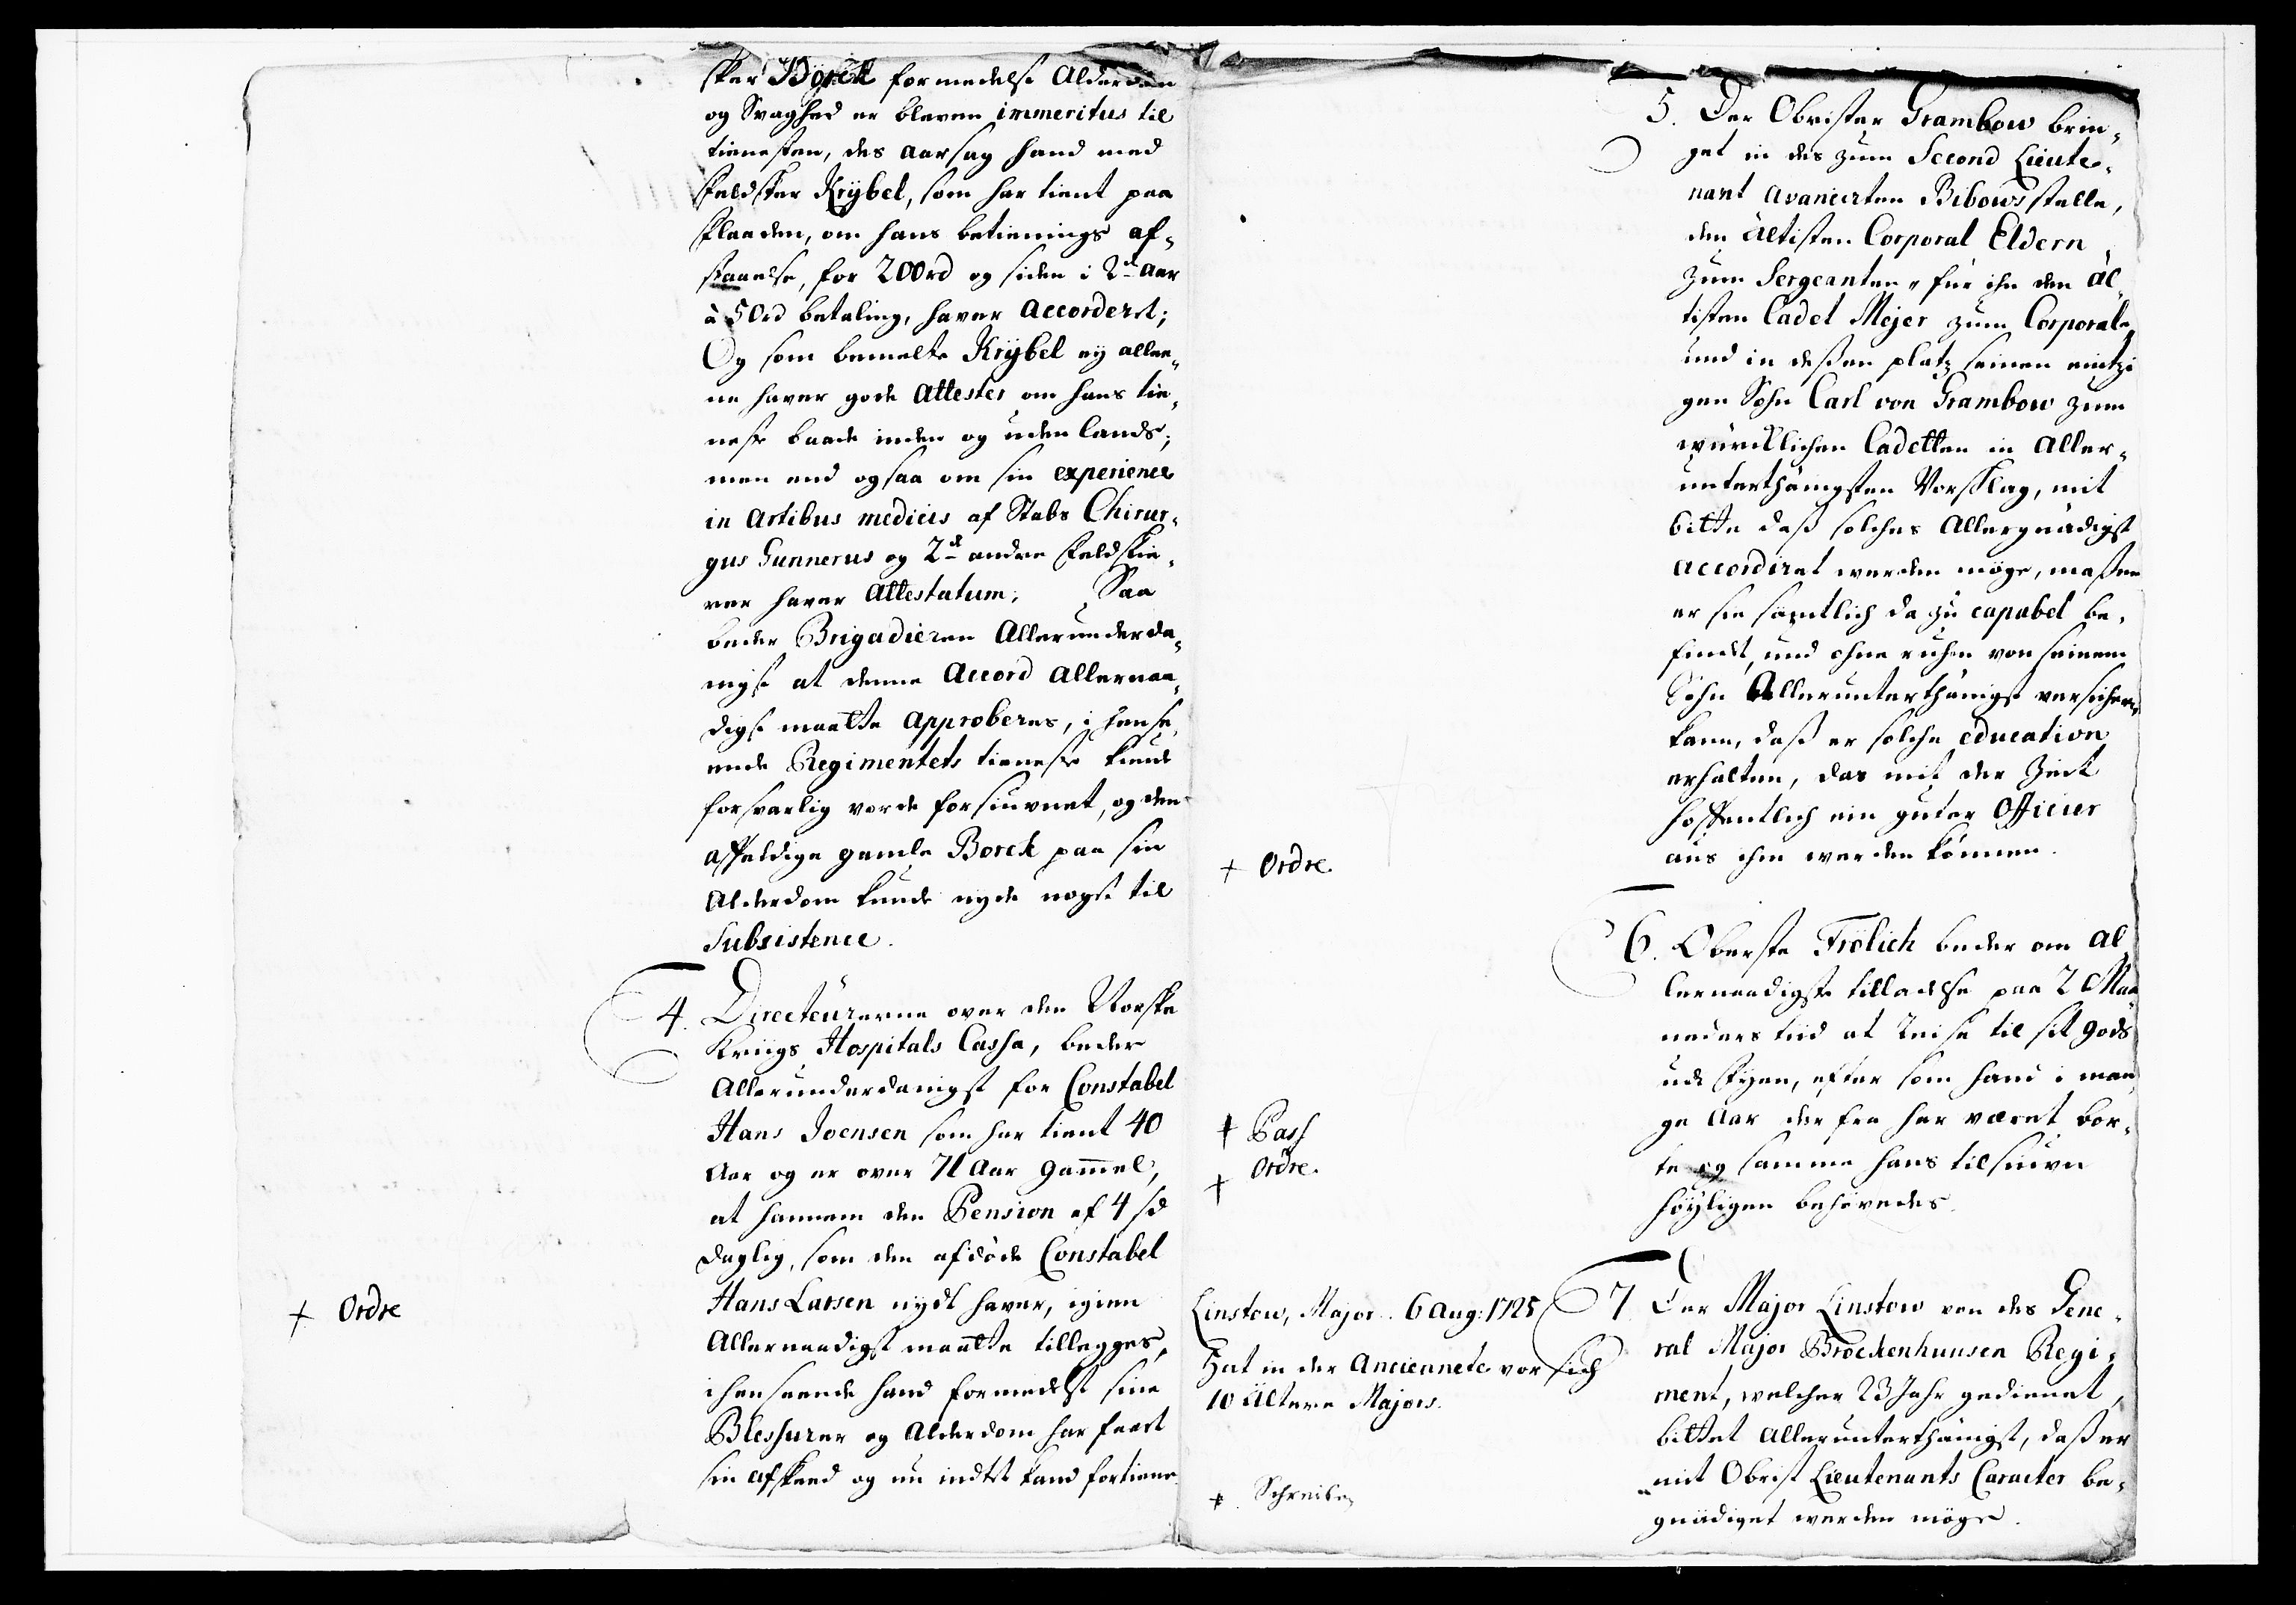 skær Borck formedelst Alderdom
og Svaghed er bleven immeritus til
tienesten, des aarsag hand med
Feldskær Krÿbel, som har tient paa
Flaaden, om hans betienings af-
staaelse, for 200rd og siden i 2de Aar
à 50rd betaling, haver accorderet;
Og som bemelte Krÿbel eÿ allee-
ne haver gode Attester om hans tie-
neste baade inden og uden Lands,
men end ogsaa om sin experience
in Artibus medicis af Stabs Chirur-
gus Gunnerus og 2de andre Feldskiæ-
rer haver Attestatum; Saa
beder Brigadieren Allerunderda-
nigst at denne Accord Allernaa-
digst maatte approberes, i hense-
ende Regimentets tieneste kunde
forsvarlig vorde forsiunet, og den
affeldige gamle Borck paa sin
Alderdom kunde nyde noget til
Subsistence.
4. Directeurerne over den Norske
Kriigs Hospitals Cassa, beder
Allerunderdanigst for Constabel
Hans Joensen som har tient 40
Aar og er over 71 Aar gammel,
at hannem den Pension af 4 sd
daglig, som den afdöde Constabel
+ Ordre
Hans Larsen nydt haver, igien
Allernaadigst maatte tillegges,
i henseende hand formedelst sine
Blessurer og Alderdom har faaet
sin afskeed og nu indtet kand fortiene
5. Der Obrister Grambow brin-
get in des zum Second Lieute-
nant avancirten Bibows stelle,
den ältisten Corporal Eldern
zum Sergeanten, für ihn den äl-
tisten Cadet Mejer zum Corporal,
und in deßen platz seinen eintzi
gen Sohn Carl von Grambow zum
würcklichen Cadetten in Aller-
unterthänigsten Vorschlag, mit
bitte daß solches Allergnädigst
accordiret werden möge, maßen
er sie sämtlich da zu capabel be-
findet, und ohne ruhm von seinem
Sohn Allerunterthänigst versichern
kann, daß er solche education
erhalten, das mit der Zeit
hoffentlich ein guter Officier
+ Ordre.
aus ihm werden können.
6. Oberste Frölich beder om al-
lernaadigste tilladelse paa 2 Maa
neders tiid at reise til sit gods
udi Fyen, efter som hand i man
ge Aar derfra har været bor-
te og samme hans tilsiun
höÿligen behövedes.
+ Pass
+ Ordre.
Linstow, Major. 6 Aug: 1725
Hat in der Anciennete vor sich
10 Ältere Majors.
7. Der Major Linstow von des Gene-
ral Major Bröckenhuusen Regi-
ment, welcher 23 Jahr gedienet,
bittet allerunterthänigst, daß er
mit Obrist Lieutenants Caracter be-
gnädiget werden möge.
+. Schreiben